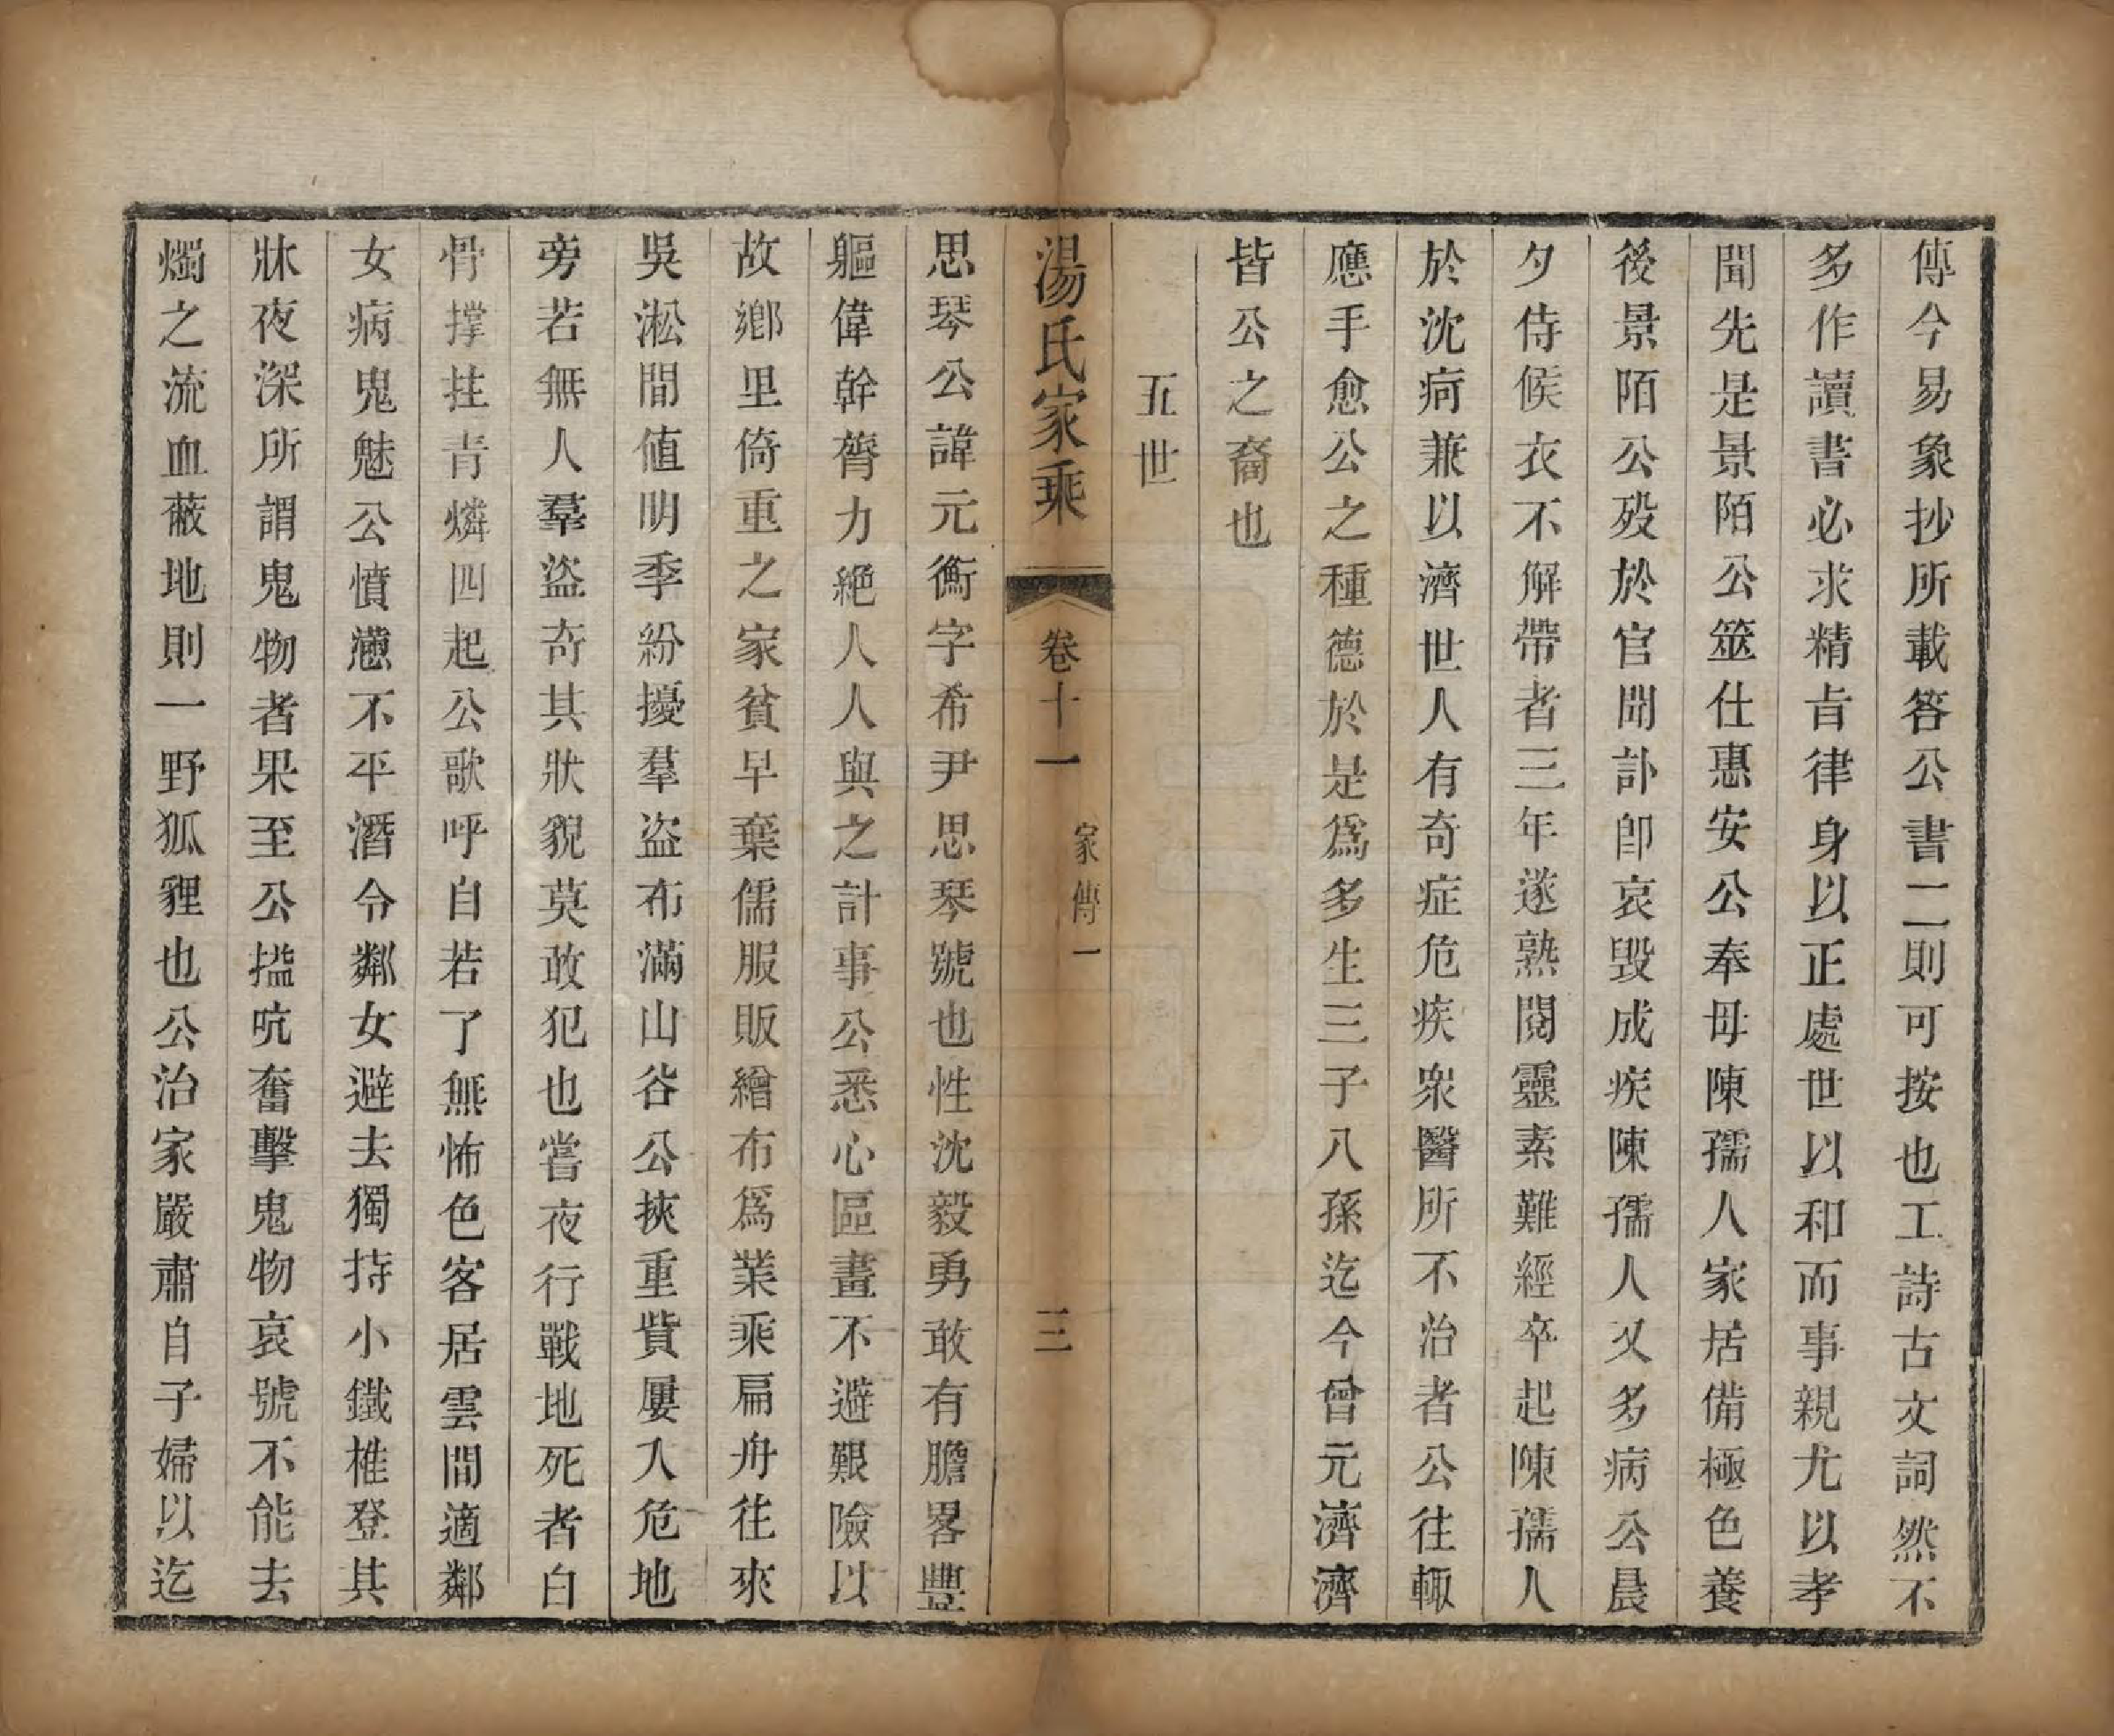 傳今易象抄所載答公書二則可按也工詩古文詞然不
多作讀書必求精㫖律身以正處世以和而事親尤以孝
聞先是景陌公筮仕惠安公奉母陳孺人家居備極色養
後景陌公歿於官聞訃卽哀毀成疾陳孺人又多病公晨
夕侍候衣不解帶者三年遂熟閱靈素難經卒起陳孺人
於沈疴兼以濟世人有奇症危疾衆醫所不治者公往輒
應手愈公之種德於是爲多生三子八孫迄今曾元濟濟
皆公之裔也
五世
湯氏家乘
卷十一
家傳一
三
思琴公諱元衡字希尹思琴號也性沈毅勇敢有膽畧豐
軀偉幹膂力絕人人與之計事公悉心區畫不避艱險以
故鄉里倚重之家貧早棄儒服販繒布爲業乘扁舟往來
吳淞間值明季紛擾羣盜布滿山谷公挾重貲屢入危地
旁若無人羣盜奇其狀貌莫敢犯也嘗夜行戰地死者白
骨撐拄青燐四起公歌呼自若了無怖色客居雲間適鄰
女病鬼魅公憤懣不平潛令鄰女避去獨持小鐵椎登其
牀夜深所謂鬼物者果至公搤吭奮擊鬼物哀號不能去
燭之流血蔽地則一野狐貍也公治家嚴肅自子婦以迄